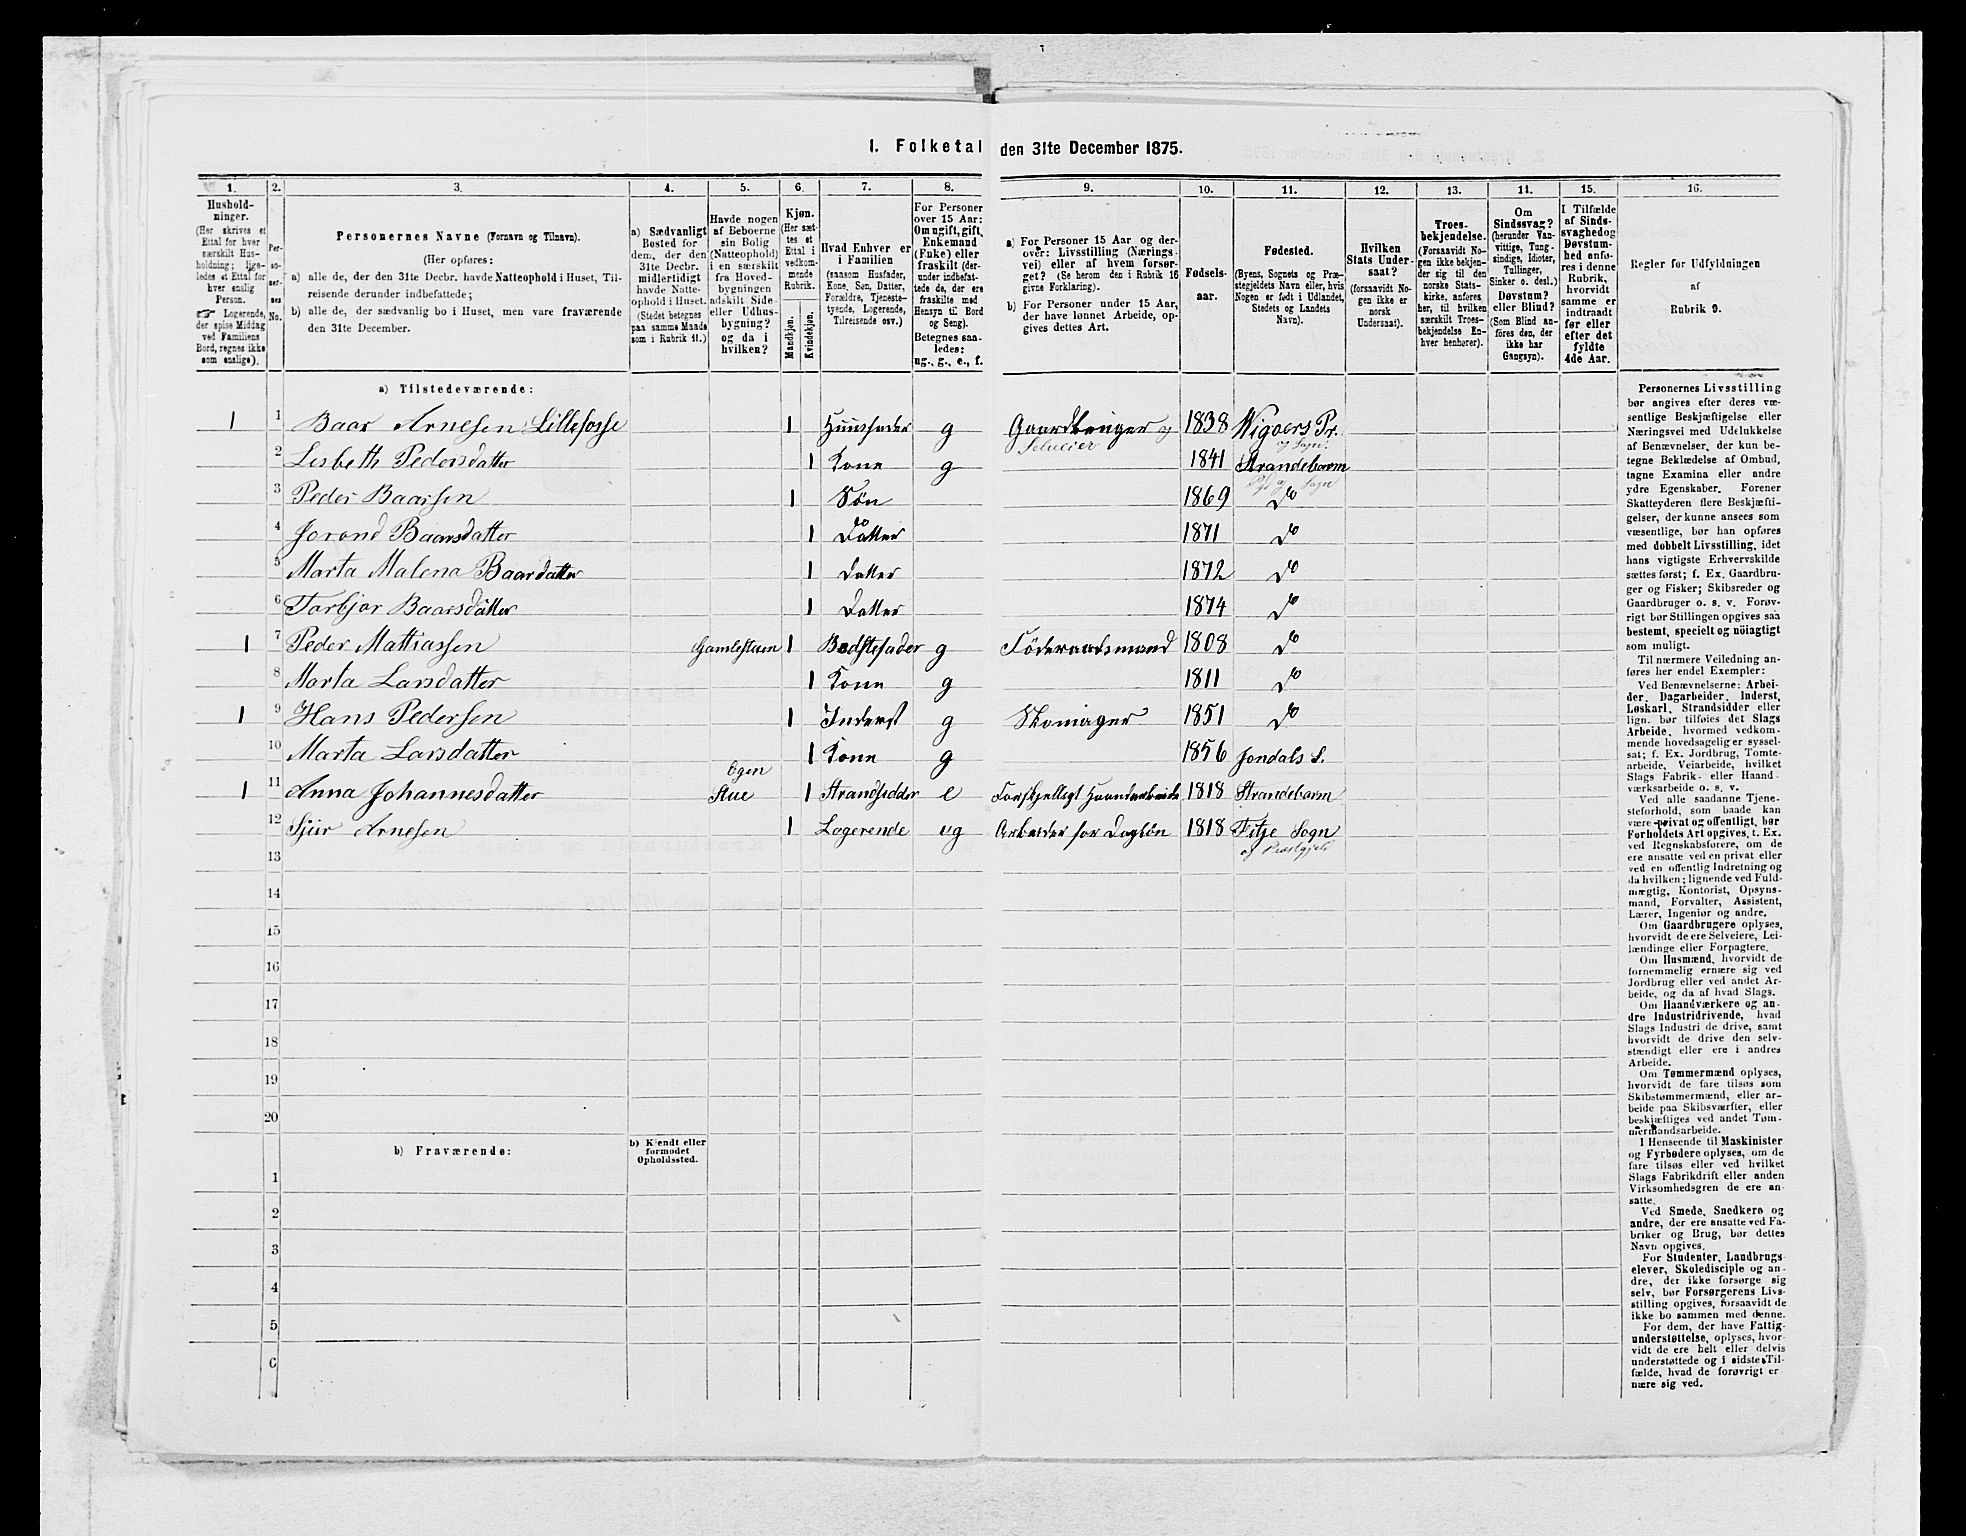 1. Folketal den 31te December 1875.
1. 2. 3. 4. 5. 6. 7. 8. 9. 10. 11. 12. 13. 14. 15. 16.
Hushold-
ninger.
(Her skrives et
Ettal for hver
særskilt Hus-
holdning; lige-
ledes et Ettal for
hver enslig
Person.
☞ Logerende,
der spise Middag
ved Familiens
Bord, regnes ikke
som enslige).
Per-
so-
ner-
nes
No.
Personernes Navne (Fornavn og Tilnavn).
(Her opføres:
a) alle de, der den 31te Decbr. havde Natteophold i Huset, Til-
reisende derunder indbefattede;
b) alle de, der sædvanlig bo i Huset, men vare fraværende
den 31te December.
a) Sædvanligt
Bosted for
dem, der den
31te Decbr.
midlertidigt
havde Natte-
ophold i Huset.
(Stedet betegnes
paa samme Maade
som i Rubrik 11.)
Havde nogen
af Beboerne
sin Bolig
(Natteophold)
i en særskilt
fra Hoved-
bygningen
adskilt Side-
eller Udhus-
bygning?
og da i
hvilken?
Kjøn.
(Her sæt-
tes et
Ettal i
vedkom-
mende
Rubrik.
Mandkjøn.
Kvindekjøn.
Hvad Enhver er
i Familien
(saasom Husfader,
Kone, Søn, Datter,
Forældre, Tjeneste-
tyende, Logerende,
Tilreisende osv.)
For Personer
over 15 Aar:
Om ugift, gift,
Enkemand
(Enke) eller
fraskilt (der-
under indbefat-
tede de, der ere
fraskilte med
Hensyn til Bord
og Seng).
Betegnes saa-
ledes:
ug., g., e., f.
a) For Personer 15 Aar og der-
over: Livsstilling (Nærings-
vei) eller af hvem forsør-
get? (Se herom den i Rubrik 16
givne Forklaring).
b) For Personer under 15 Aar,
der have lønnet Arbeide, op-
gives dettes Art.
Fødsels-
aar.
Fødested.
(Byens, Sognets og Præ-
stegjeldets Navn eller, hvis
Nogen er født i Udlandet,
Stedets og Landets
Navn).
Hvilken
Stats Under-
saat?
(forsaavidt No-
gen ikke er
norsk
Undersaat).
Troes-
bekjendelse.
(Forsaavidt No-
gen ikke bekjen-
der sig til den
norske Stats-
kirke, anføres
her, til hvilken
særskilt Troes-
bekjendelse En-
hver henhører).
Om
Sindssvag?
(herunder Van-
vittige, Tung-
sindige, Idioter,
Tullinger,
Sinker o. desl.)
Døvstum?
eller Blind?
(Som Blind an-
føres den, der
ikke har
Gangsyn).
I Tilfælde
af Sinds-
svaghed og
Døvstum-
hed anfø-
res i denne
Rubrik,
hvorvidt
samme er
indtraadt
før eller
efter det
fyldte
4de Aar.
Regler for Udfyldningen
af
Rubrik 9.
a) Tilstedeværende:
1 1 Baar Arnesen Lillefosse 1 Huusfader g Gaardbruger og Selveier 1838 Wigøers Pr. og Sogn
2 Lisbeth Pedersdatter 1 Kone g 1841 Strandebarm
3 Peder Baarsen 1 Søn 1869 Do
4 Jorond Baarsdatter 1 Datter 1871 Do
5 Marta Malena Baardatter 1 Datter 1872 Do
6 Torbjør Baarsdatter 1 Datter 1874 Do
1 7 Peder Mattiassen Gamlestuen 1 Bedstefader g Föderaadsmand 1808 Do
8 Marta Larsdatter 1 Kone g 1811 Do
1 9 Hans Pedersen 1 Inderst g Skomager 1851 Do
10 Marta Larsdatter 1 Kone g 1856 Jondals S.
1 11 Anna Johannesdatter Egen Stue 1 Strandsidder e Forskjelligt Haandarbeide 1818 Strandebarm
12 Sjur Arnesen 1 Logerende ug Arbeider for Daglön 1818 Fitje Sogn og Præstgjeld
13
14
15
16
17
18
19
20
b) Fraværende:
b) Kjendt eller
formodet
Opholdssted.
1
2
3
4
5
6
Personernes Livsstilling
bør angives efter deres væ-
sentlige Beskjæftigelse eller
Næringsvei med Udelukkelse
af Benævnelser, der kun be-
tegne Beklædelse af Ombud,
tagne Examina eller andre
ydre Egenskaber. Forener
Skatteyderen flere Beskjæfti-
gelser, der kunne ansees som
væsentlige, bør han opføres
med dobbelt Livsstilling, idet
hans vigtigste Erhvervskilde
sættes først; f. Ex. Gaardbru-
ger og Fisker; Skibsreder og
Gaardbruger o. s. v. Forøv-
rigt bør Stillingen opgives saa
bestemt, specielt og nöiagtigt
som muligt.
Til nærmere Veiledning an-
føres her endel Exempler:
Ved Benævnelserne: Arbei-
der, Dagarbeider, Inderst,
Løskarl, Strandsidder eller
lign. bør tilføies det Slags
Arbeide, hvormed vedkom-
mende hovedsagelig er syssel-
sat; f. Ex. Jordbrug, Tomte-
arbeide, Veiarbeide, hvilket
Slags Fabrik- eller Haand-
værksarbeide o. s. v.
Ved alle saadanne Tjene-
steforhold, som baade kan
være privat og offentligt, bør
Forholdets Art opgives, t. Ex.
ved Regnskabsførere, om de
ere ansatte ved en privat eller
ved en offentlig Indretning og
da hvilken; lignende ved Fuld-
mægtig, Kontorist, Opsyns-
mand, Forvalter, Assistent,
Lærer, Ingeniør og andre.
Om Gaardbrugere oplyses,
hvorvidt de ere Selveiere, Lei-
lændinge eller Forpagtere.
Om Husmænd, hvorvidt de
fornemmelig ernære sig ved
Jordbrug eller ved andet Ar-
beide, og da af hvad Slags.
Om Haandværkere og an-
dre Industridrivende, hvad
Slags Industri de drive, samt
hvorvidt de drive den selv-
stændigt eller ere i andres
Arbeide.
Om Tømmermænd oplyses,
hvorvidt de fare tilsøs som
Skibstømmermænd, eller ar-
beide paa Skibsværfter, eller
beskjæftiges ved andet Tøm-
mermandsarbeide.
I Henseende til Maskinister
og Fyrbødere oplyses, om de
fare tilsøs eller ved hvilket
Slags Fabrikdrift eller anden
Virksomhedsgren de ere an-
satte.
Ved Smede, Snedkere og
andre, der ere ansatte ved Fa-
briker og Brug, bør dettes
Navn opgives.
For Studenter, Landbrugs-
elever, Skoledisciple og an-
dre, der ikke forsørge sig
selv, bør Forsørgerens Livs-
stilling opgives, forsaavidt de
ikke bo sammen med denne.
For dem, der have Fattig-
understøttelse, oplyses, hvor-
vidt de ere helt eller delvis
understøttede og i sidste Til-
fælde, hvad de forøvrigt er-
nære sig ved.